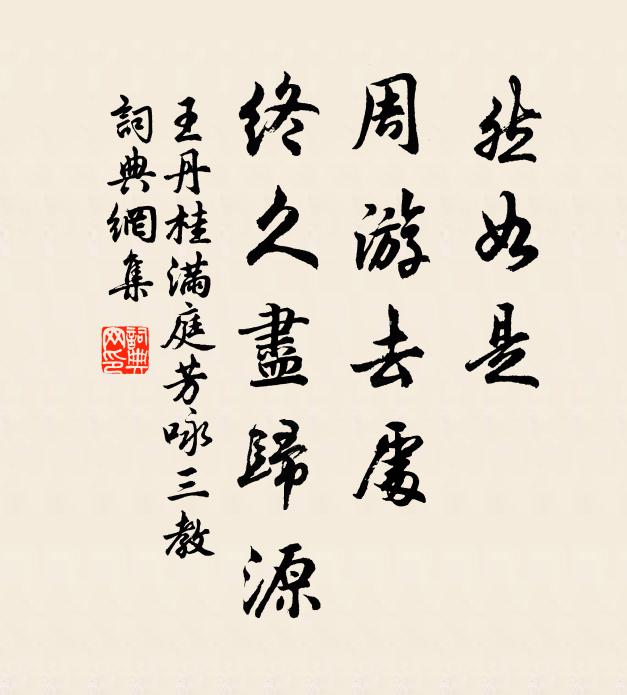 然如是
周游去處
終久盡歸源
王丹桂满庭芳咏三教
詞典網集
詞典网印